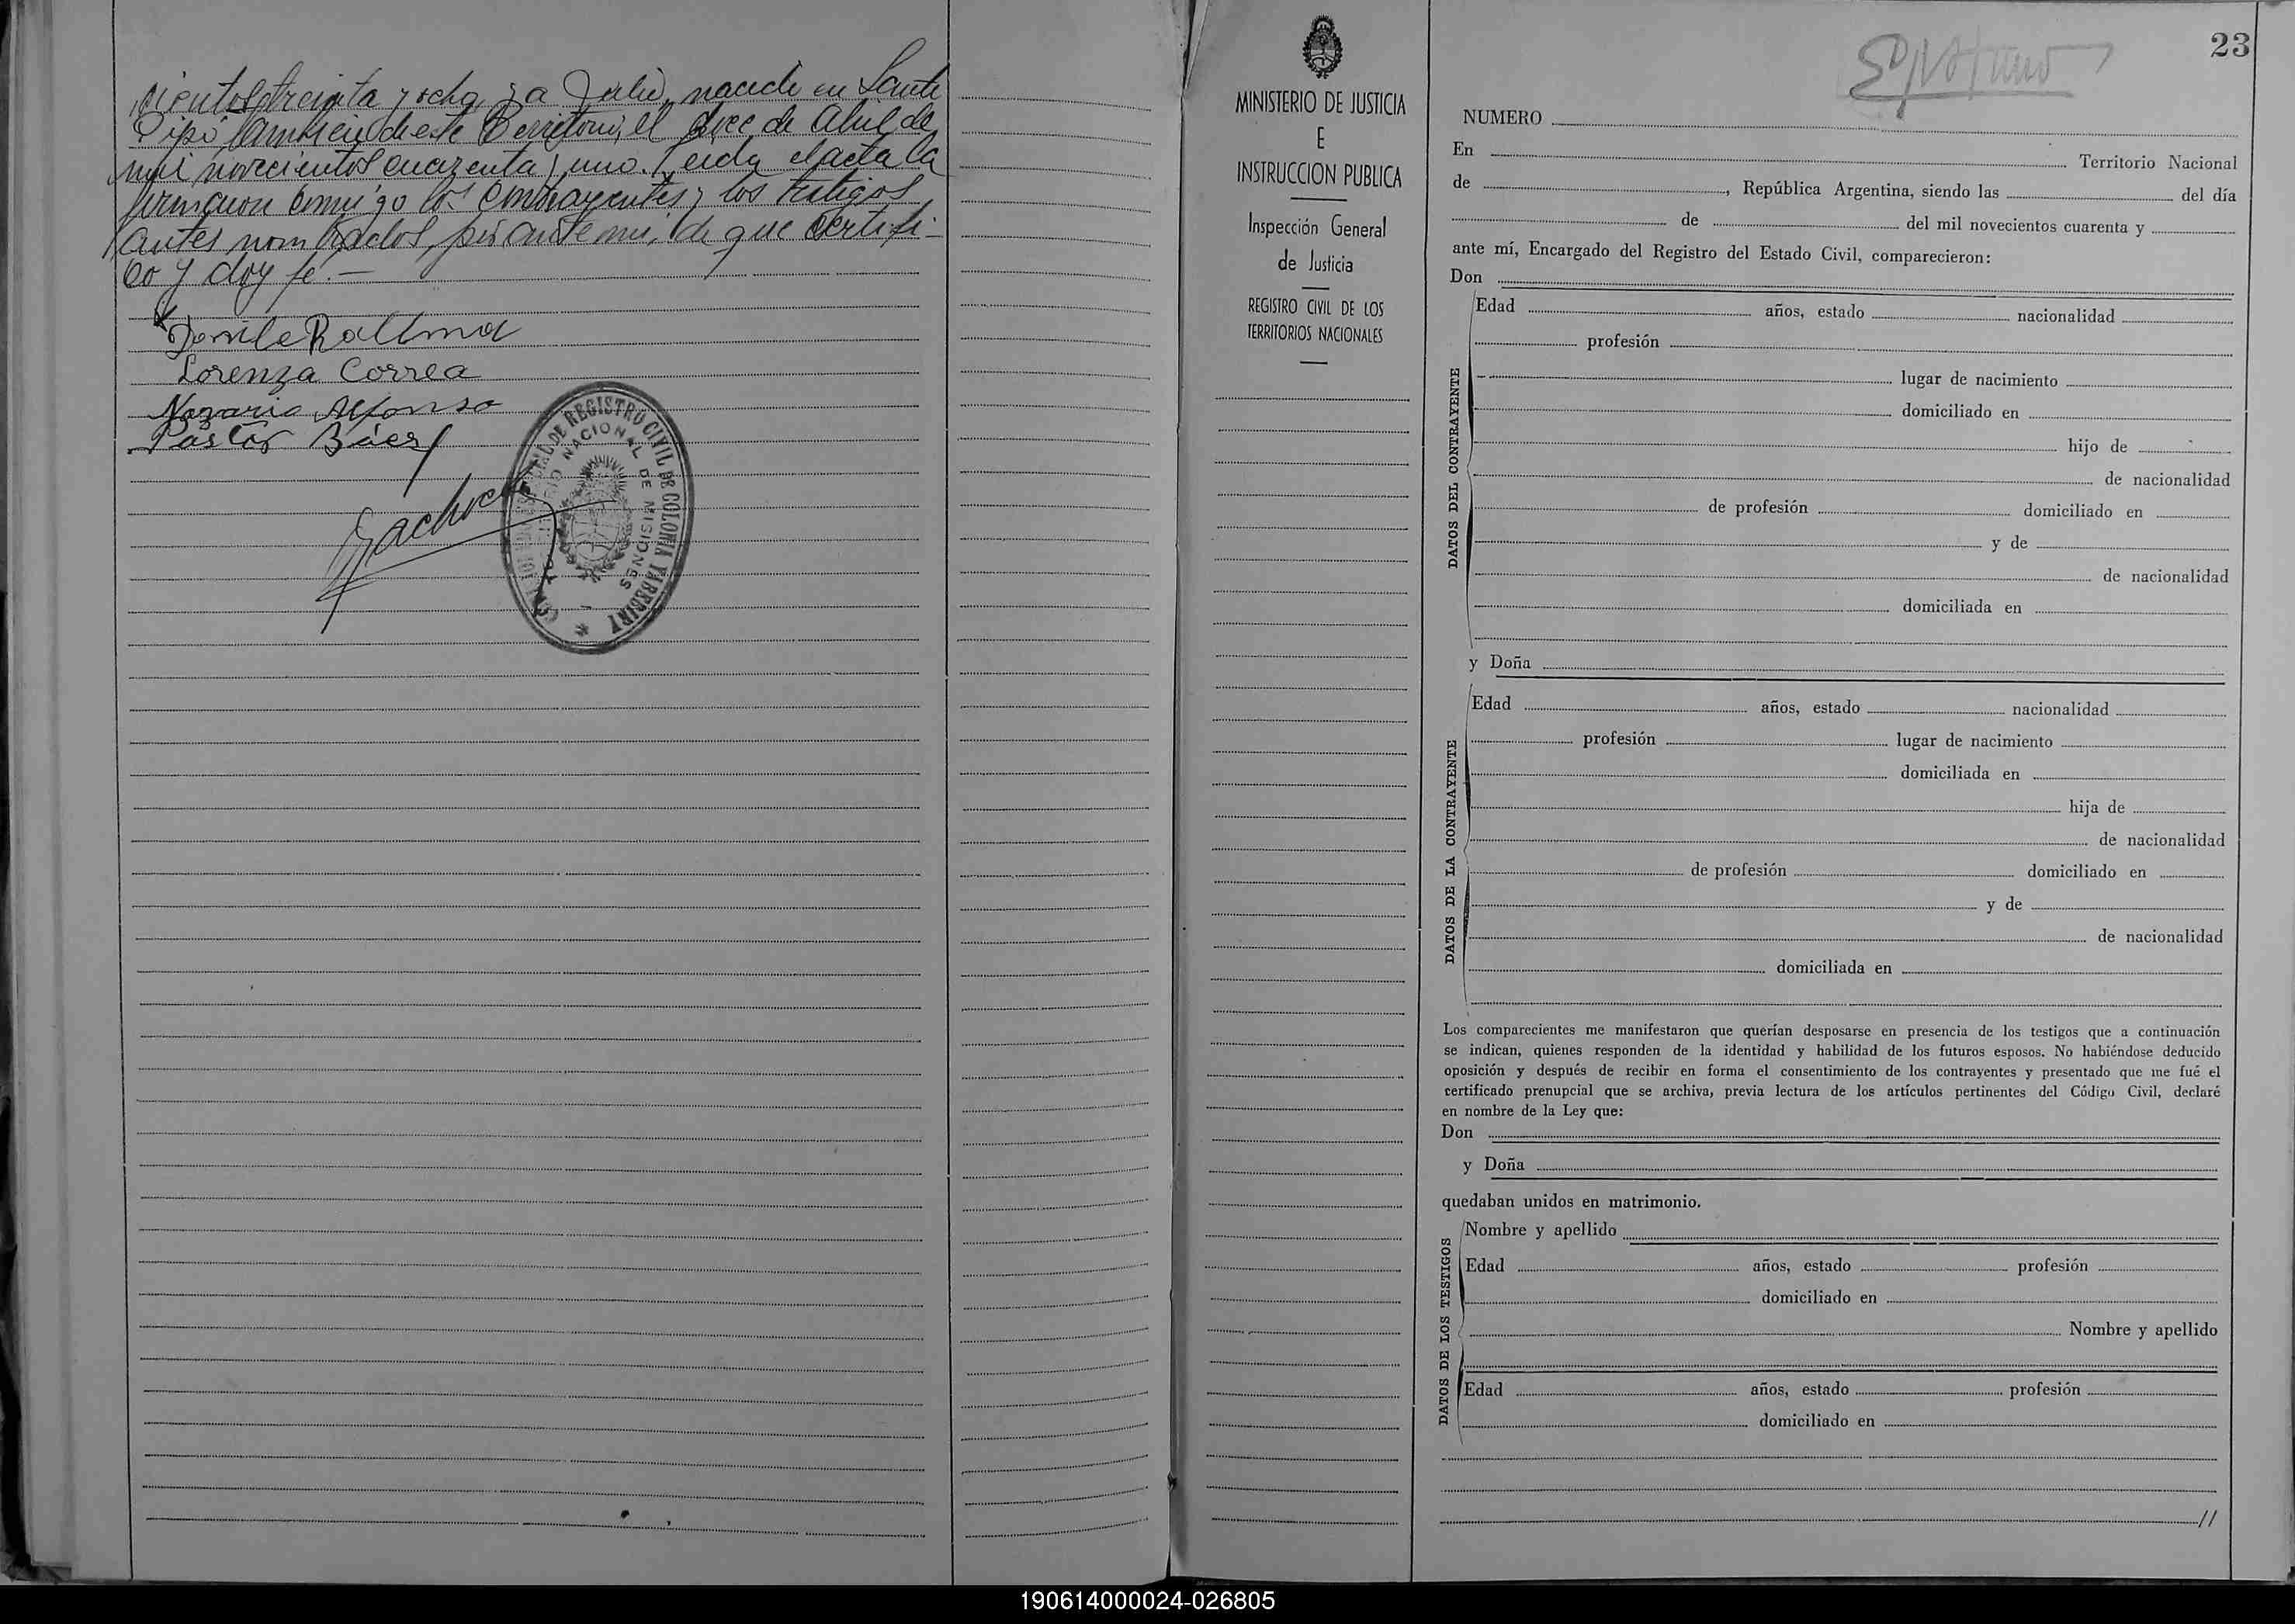 cientos treinta y ocho, y a Julio, nacido en Santo
Pipó, también de este Territorio, el doce de Abril de
mil novecientos cuarenta y uno. Leida el acta la
firmaron conmigo los contrayentes y los testigos
antes nombrados, por ante mi, de que certifi-
co y doy fe.—
Lorenza Correa
Nazario Alfonso
Pastor Báez
REGISTRO CIVIL DE COLONIA YABEBIRY
NACIONAL DE MISIONES
MINISTERIO DE JUSTICIA
E
INSTRUCCION PUBLICA
Inspección General
de Justicia
REGISTRO CIVIL DE LOS
TERRITORIOS NACIONALES
23
NUMERO
En Territorio Nacional
de , República Argentina, siendo las del día
de del mil novecientos cuarenta y
ante mí, Encargado del Registro del Estado Civil, comparecieron:
Don
DATOS DEL CONTRAYENTE
Edad años, estado nacionalidad
profesión
lugar de nacimiento
domiciliado en
hijo de
de nacionalidad
de profesión domiciliado en
y de
de nacionalidad
domiciliada en
y Doña
DATOS DE LA CONTRAYENTE
Edad años, estado nacionalidad
profesión lugar de nacimiento
domiciliada en
hija de
de nacionalidad
de profesión domiciliado en
y de
de nacionalidad
domiciliada en
Los comparecientes me manifestaron que querían desposarse en presencia de los testigos que a continuación
se indican, quienes responden de la identidad y habilidad de los futuros esposos. No habiéndose deducido
oposición y después de recibir en forma el consentimiento de los contrayentes y presentado que me fué el
certificado prenupcial que se archiva, previa lectura de los artículos pertinentes del Código Civil, declaré
en nombre de la Ley que:
Don
y Doña
quedaban unidos en matrimonio.
DATOS DE LOS TESTIGOS
Nombre y apellido
Edad años, estado profesión
domiciliado en
Nombre y apellido
Edad años, estado profesión
domiciliado en
//
190614000024-026805